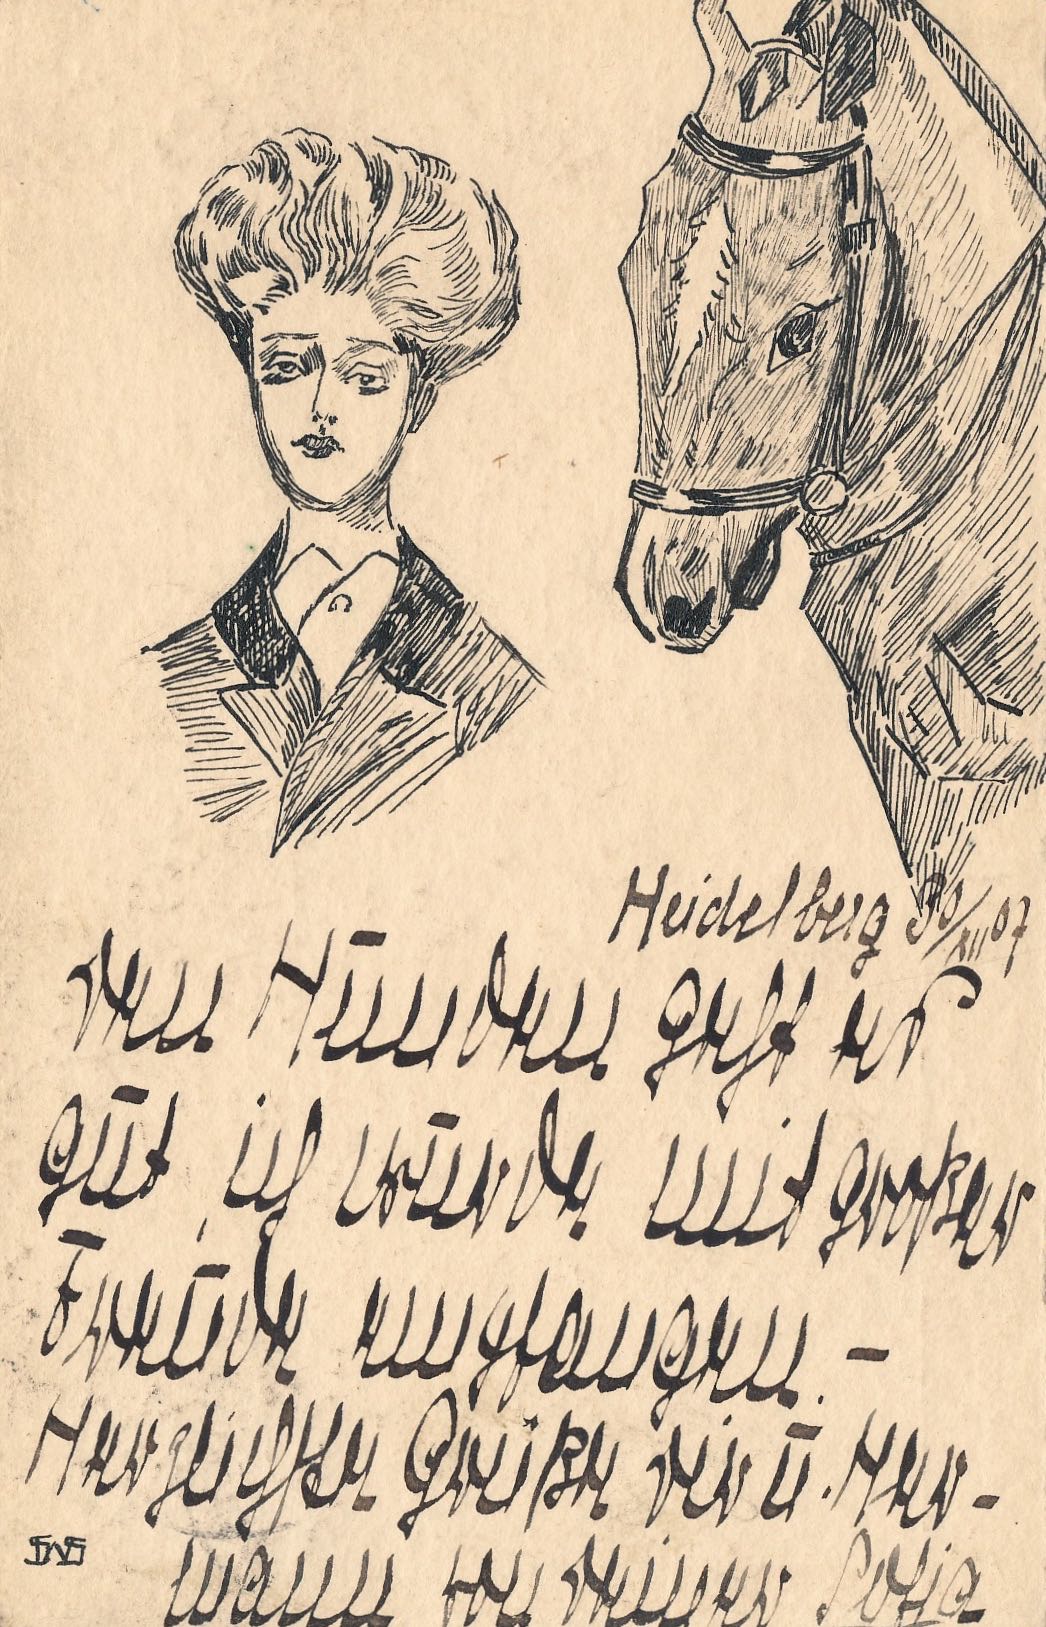 Heidelberg 30/XII 07
Den Hunden geht es
gut, ich wurde mit großer
Freude empfangen. –
Herzlichste Grüße dir u. Her-
mann von deiner Sofia
SWS